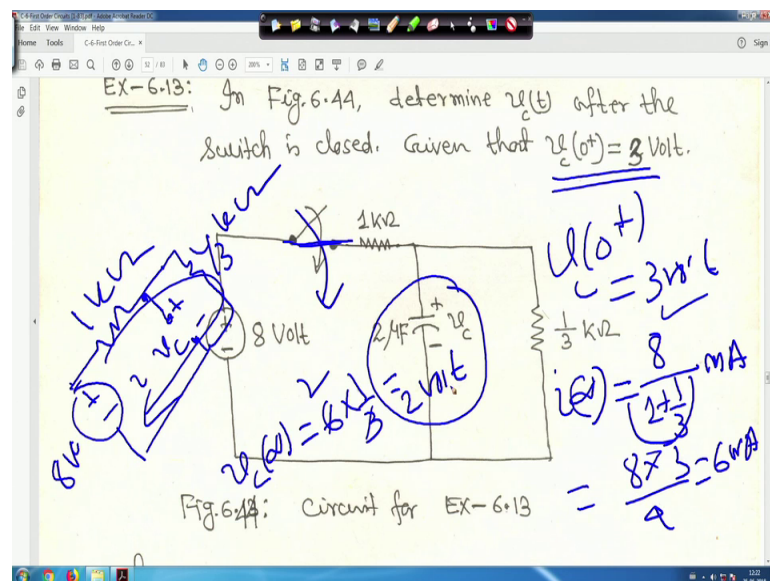 C-6-First Order Circuits [1-83].pdf - Adobe Acrobat Reader DC
File Edit View Window Help
Home Tools C-6-First Order Cir... × Sign
52 / 83 200%
EX-6.13: In Fig. 6.44, determine v_c(t) after the
switch is closed. Given that v_c(0+) = 3 Volt.
1kΩ
v_c(0+) = 3 volt
1kΩ
1/3 kΩ
8 Volt
2μF + v_c -
1/3 kΩ
8V
i(∞) = 8 / (1+1/3) mA
v_c(∞) = 6 × 1/3 = 2 volt
= 8×3 / 4 = 6 mA
Fig. 6.44: Circuit for EX-6.13
12:22